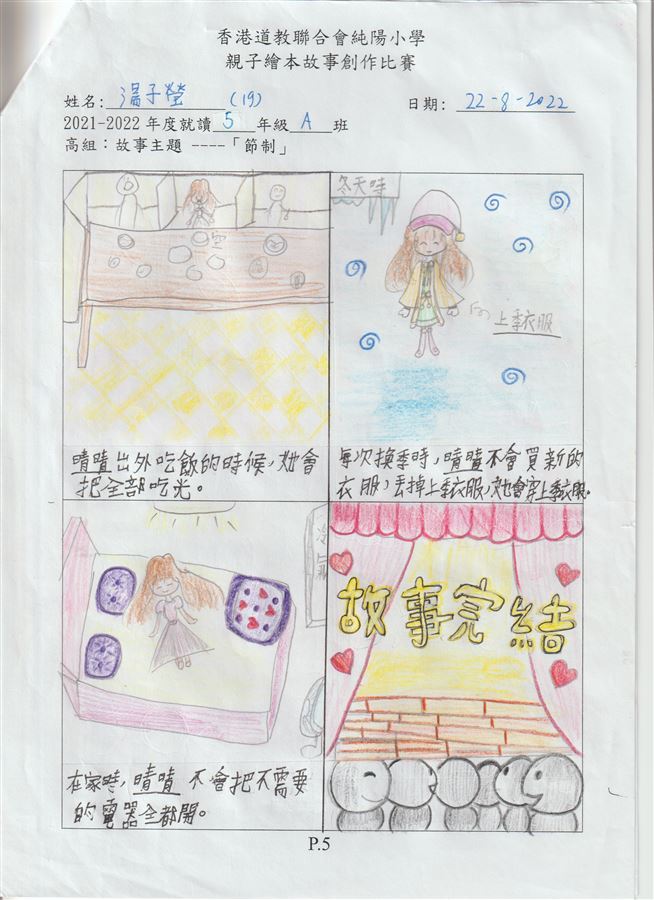 香港道教聯合會純陽小學
親子繪本故事創作比賽
姓名: 馮子瑩 (19) 日期: 22-8-2022
2021-2022 年度就讀 5 年級 A 班
高組：故事主題 ----「節制」
空
冬天時
上季衣服
晴晴出外吃飯的時候，她會
把全部吃光。
每次換季時，晴晴不會買新的
衣服，丟掉上季衣服，她會穿上季衣服。
冷氣
故事完結
在家時，晴晴 不會把不需要
的電器全都開。
P.5